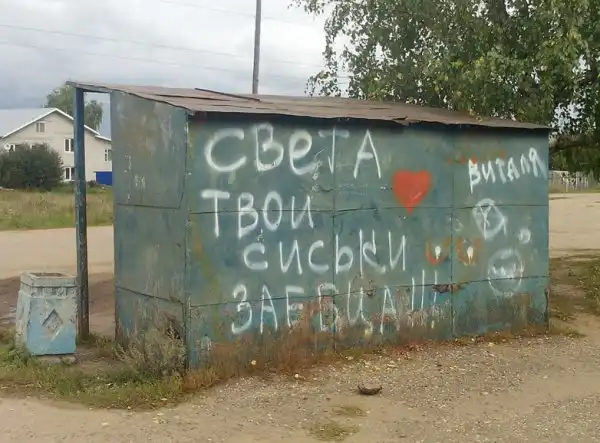 Света
твои
сиськи
заебца!!!
Виталя